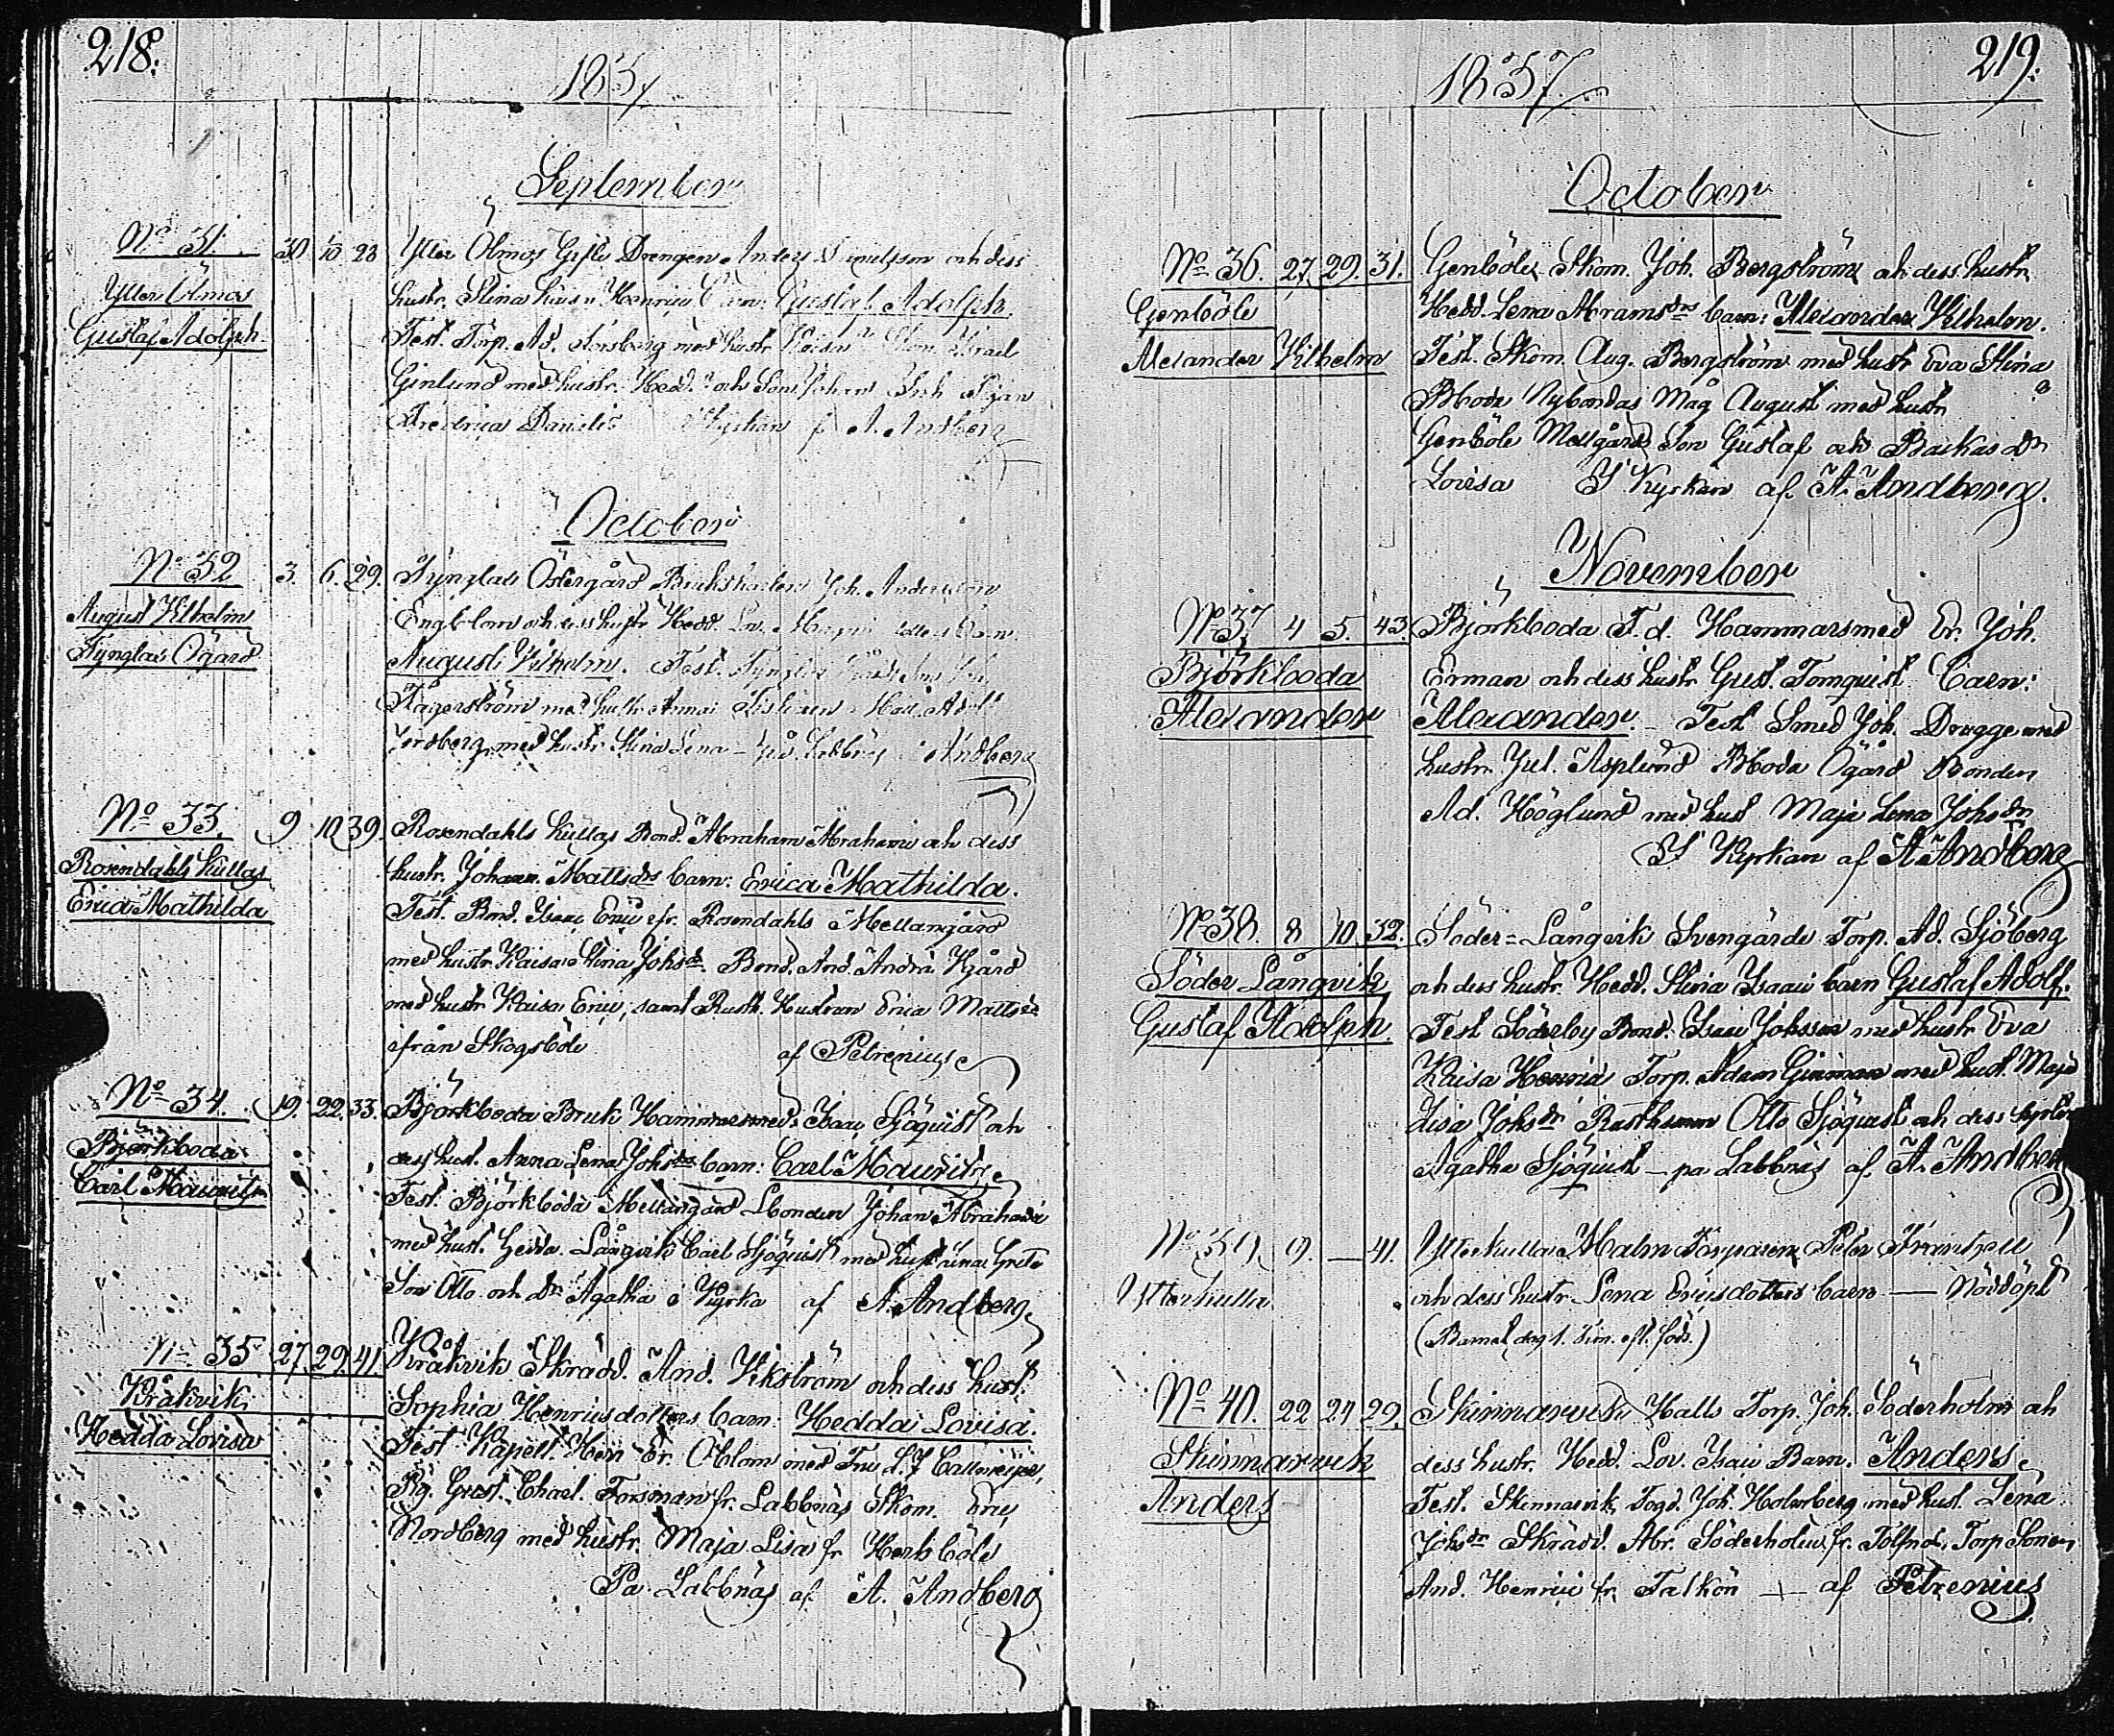 218.
1857
September
No 31. 30 10 28
Ytter Ölmos
Gustaf Adolph
Ytter Ölmos Gifte Drengen Anders och dess
hustr. Stina Barn: Gustaf Adolph.
Test. Torp. Ad. med hustr Skom. Israel
Genlund med hustr. Hedd. och Son Johan Pigan
Fredrica Daniels Kyrkan af A. Andberg
October
No 32 3. 6. 29.
August Vilhelm
Tynglax Ögård
Tynglax Östergård Joh. Andersson
Engblom och dess hustr Hedd. Lov. Barn
August Vilhelm. Test. Tynglax
Lagerström med hustr Anna
Nordberg med hustr Stina Lena Labbnäs Andberg
No 33. 9 10 39.
Rosendahls Kullas
Erica Mathilda
Rosendahls Kullas Bond. Abraham Abrahams och dess
hustr. Johan. Mattsdr barn: Erica Mathilda.
Test. Bond. Isaac Eric fr. Rosendahls Mellangård
med hustr Kaisa Stina Johsdr. Bond. And. Andrs
med hustr Kaisa Eric, samt Rusth. Hustrun Erica Mattsdr
ifrån Skogsböle af Petrenius
No 34. 19. 22. 33.
Björkboda
Carl Mauritz
Björkboda Bruk Hammarsmed. Isaac Sjöquist och
dess hust. Anna Lena Johsdr barn: Carl Mauritz
Test. Björkboda Mellangård Bonden Johan Abrahams
med hust. Hedda. Långvik Carl Sjöquist med hust Anna Greta
Son Otto och dr Agatha i Kyrka af A. Andberg.
No 35 27. 29. 41.
Kråkvik
Hedda Lovisa
Kråkvik Skrädd. And. Vikström och dess hust.
Sophia Henricsdotters barn: Hedda Lovisa.
Test Kapell. Herr Er. Öblom med Fru L. J.
Pig. Gust. Charl. Forsman fr. Labbnäs Skom. Eric
Nordberg med hustr. Maja Lisa fr
På Labbnäs af A. Andberg
219.
1857.
October
No 36. 27. 29. 31.
Genböle
Alexander Vilhelm
Genböle Skom. Joh. Bergström och dess hustr
Hedd. Lena Abramsdrs barn: Alexander Vilhelm.
Test. Skom. Aug. Bergström med hustr Eva Stina
Bboda Nybondas Måg August med hustr
Genböle Mellgårds Son Gustaf och Backas dr
Lovisa I Kyrkan af A. Andberg.
November
No 37 4 5. 43.
Björkboda
Alexander
Björkboda F. d. Hammarsmed Er. Joh.
Erman och dess hustr Gust. Tornquist Barn:
Alexander. Test Smed Joh. Drugge med
hustr. Jul. Asplund Bboda Ögård Bonden
Ad. Höglund med hust Maja Lena Johsdr
I Kyrkan af A. Andberg
No 38. 8 10 32.
Söder Långvik
Gustaf Adolph.
Söder-Långvik Svengärds Torp. Ad. Sjöberg
och dess hustr. Hedd. Stina Isaacs barn Gustaf Adolf.
Test Söderby Bond. Isaac Johsson med hustr Eva
Kaisa Henrics Torp. Adam Ginman med hust. Maja
Lisa Johsdr Rusth. Otto Sjöquist och dess syster
Agatha Sjöquist – på Labbnäs af A. Andberg
No 39 9. — 41.
Ytterkulla
Ytterkulla Malm Torparen Peter
och dess hustr Lena Ericsdotters barn — Nöddöpt
(Barnet dog 1. tim. eft. föds.)
No 40. 22 24 29.
Skinnarvik
Anders
Skinnarvik Halls Torp. Joh. Söderholm och
dess hustr. Hedd. Lov. Isaacs Barn. Anders
Test. Skinnarvik Joh. Holmberg med hust. Lena
Johsdr Skrädd. Abr. Söderholm fr. Torp Sonen
And. Henrics fr. Falkön — af Petrenius